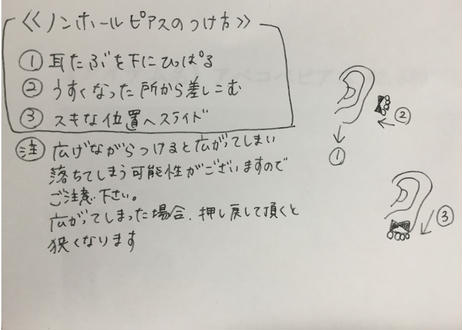 《ノンホールピアスのつけ方》
① 耳たぶを下にひっぱる
② うすくなった所から差しこむ
③ スキな位置へスライド
注 広げながらつけると広がってしまい
落ちてしまう可能性がございますので
ご注意下さい。
広がってしまった場合、押し戻して頂くと
狭くなります
②
①
③